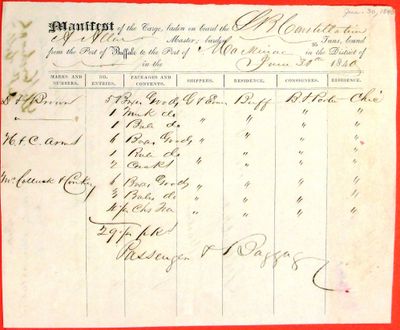 June 30, 1840
Manifest of the Cargo, laden on board the S. B. Constellation
A Allen Master; burden Tons, bound
from the Port of Buffalo to the Port of Mackinac in the District of
in the June 30th 1840
MARKS AND NUMBERS. NO. ENTRIES. PACKAGES AND CONTENTS. SHIPPERS. RESIDENCE. CONSIGNEES. RESIDENCE.
Brown 5 Boxes Goods Buff B Porter Chic
" 1 Trunk do " " " "
1 Bale do " " " "
H. & C. 6 Boxes Goods " " " "
1 Bale do " " " "
2 Casks " " " "
6 Boxes Goods " " " "
2 Bales do " " " "
4 Chs Tea " " " "
29 pks
Passengers & Baggage